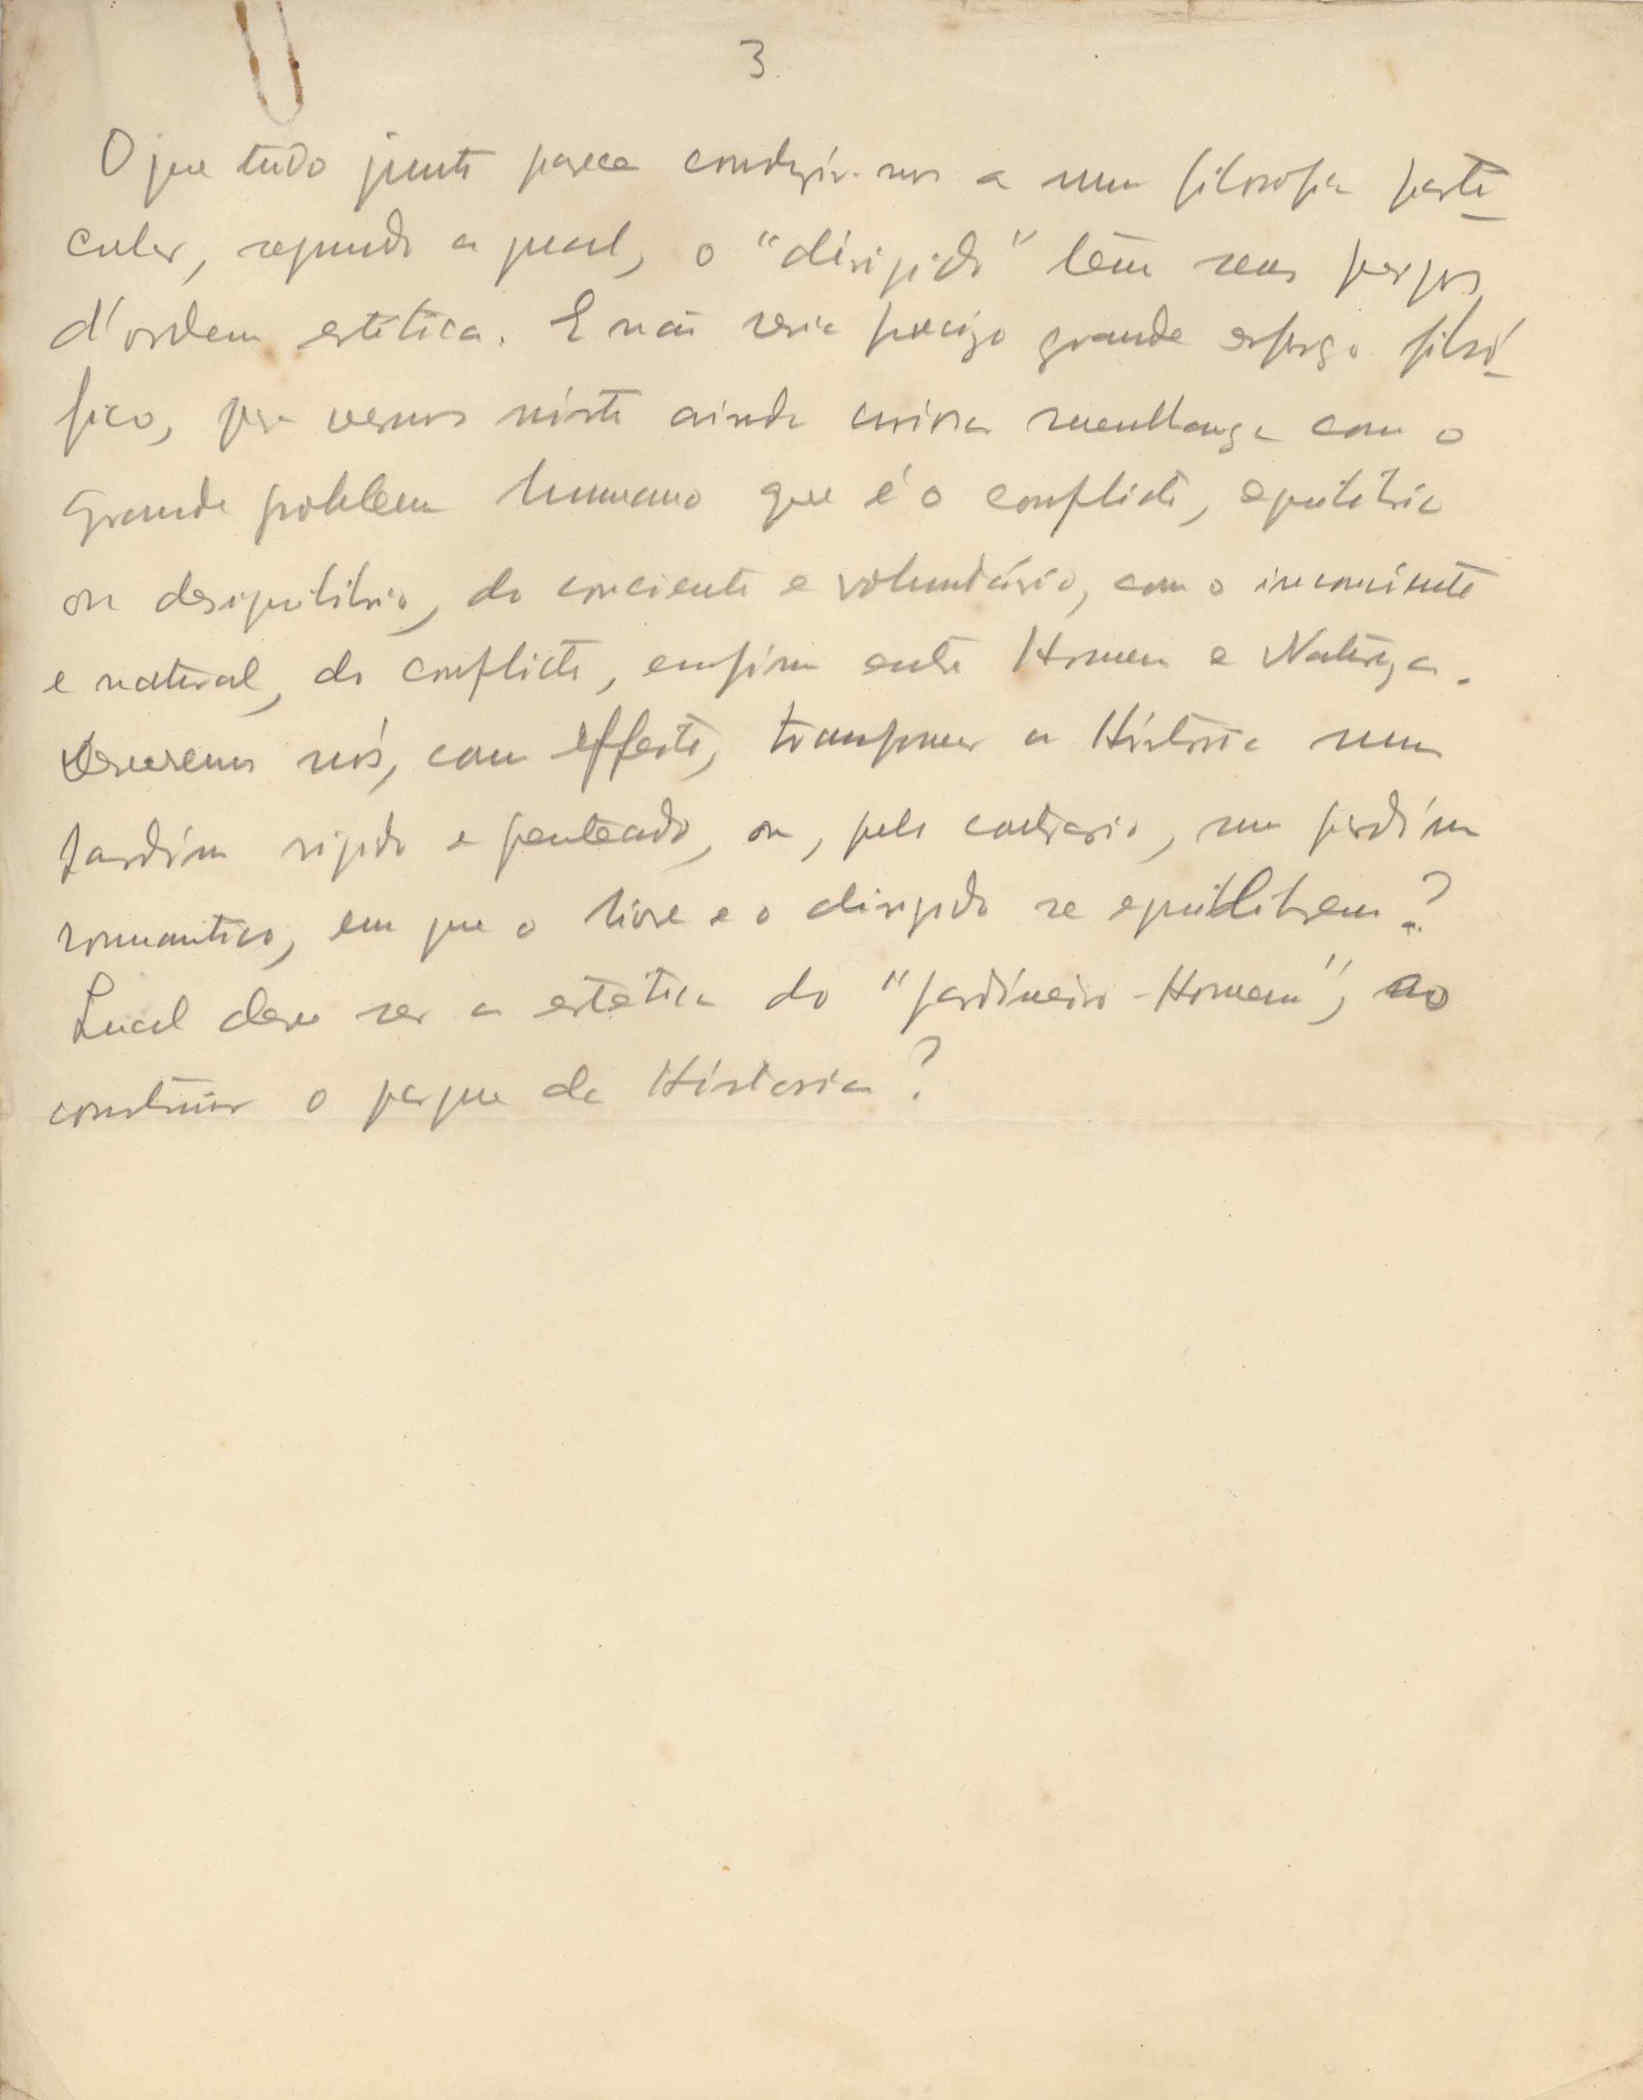 3
O que tudo junto parece conduzir-nos a uma filosofia parti-
cular, segundo a qual, o "dirigido" têm seus perigos
d'ordem estética. E não seria precizo grande esforço filozó-
fico, para vermos nisto ainda curiosa semelhança com o
grande problema humano que é o conflicto, equilibrio
ou desiquilibrio, do conciente e voluntário, com o inconciente
e natural, do conflicto, emfim entre Homem e Natureza.
Deveremos nós, com effeito, transpomer a História num
Jardim rigido e penteado, ou, pelo contrario, num jardim
romantico, em que o livre e o dirigido se equilibrem?
Qual deve ser a estetica do "Jardineiro-Homem", ao
construir o parque da Historia?